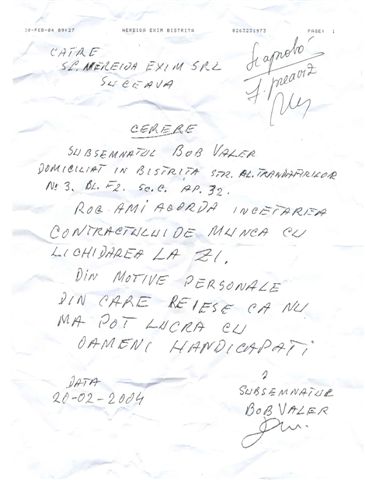 20-FEB-04 09:27 MEREIDA EXIM BISTRITA 0263231973 PAGE: 1
CATRE
SC. MEREIDA EXIM SRL
SUCEAVA
Se aprobă
F. preaviz
CERERE
SUBSEMNATUL BOB VALER
DOMICILIAT IN BISTRITA STR. AL. TRANDAFIRILOR
No 3. BL. F2. SC. C. AP. 32.
ROG AMI ACORDA INCETAREA
CONTRACTULUI DE MUNCA CU
LICHIDAREA LA ZI.
DIN MOTIVE PERSONALE
DIN CARE REIESE CA NU
MA POT LUCRA CU
OAMENI HANDICAPATI
DATA
20-02-2004
SUBSEMNATUL
BOB VALER